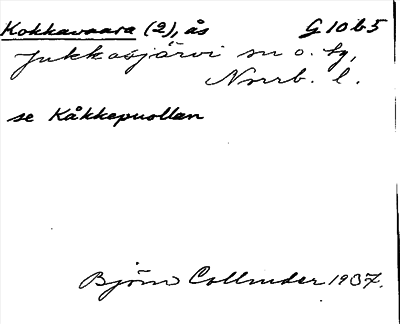 Kokkavaara (2), ås G 10 b 5
Jukkasjärvi sn o. tg,
Norrb. l.
se Kåkkapuollan
Björn Collinder 1937.